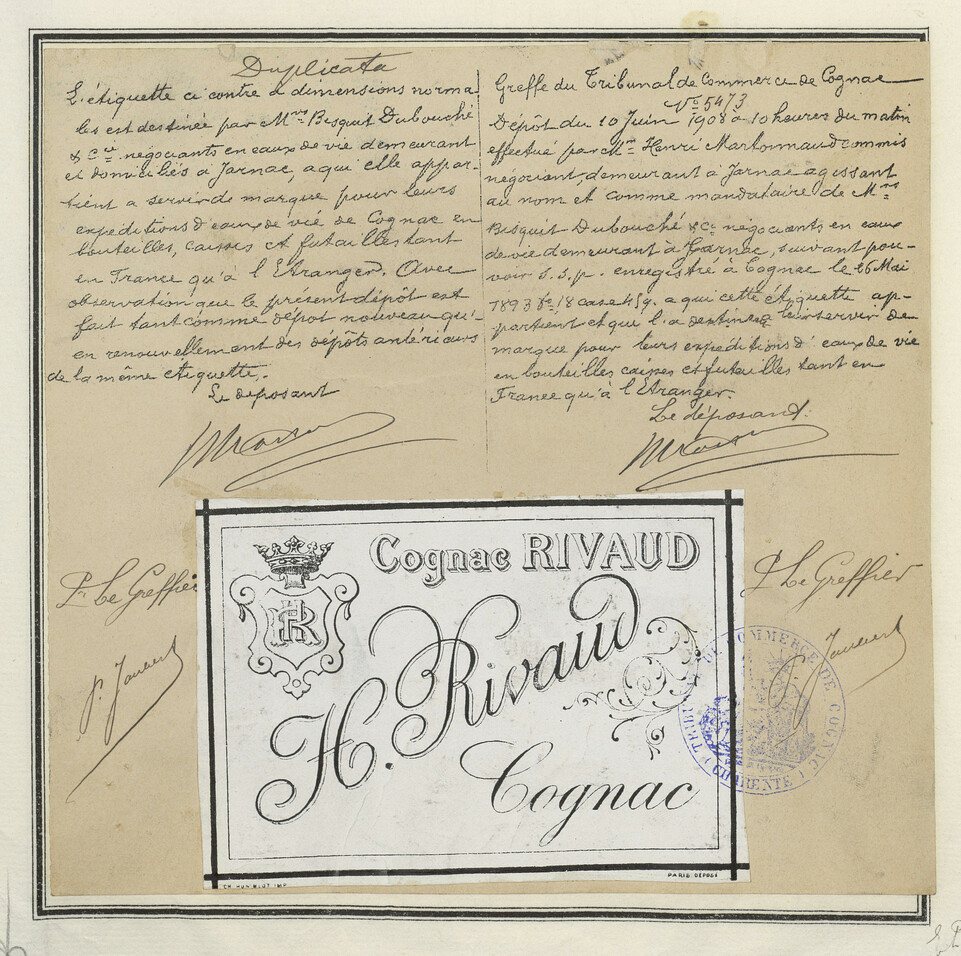 Duplicata
L'étiquette ci contre à dimensions norma-
les est destinée par Mrs Bisquit Dubouché
& Cie négociants en eaux de vie demeurant
et domiciliés à Jarnac, a qui elle appar-
tient a servir de marque pour leurs
expeditions d'eaux de vie de Cognac en
bouteilles, caisses et futailles tant
en France qu'à l'Etranger. Avec
observation que le present dépôt est
fait tant comme dépot nouveau qu'
en renouvellement des dépôts antérieurs
de la même étiquette.
Le deposant
Greffe du Tribunal de Commerce de Cognac
No 5473
Dépôt du 10 Juin 1908 à 10 heures du matin
effectué par Mr Henri Martonnaud commis
négociant, demeurant à Jarnac agissant
au nom et comme mandataire de Mrs
Bisquit Dubouché & Cie négociants en eaux
de vie demeurant à Jarnac, suivant pou-
voir S.S.p. enregistré à Cognac le 26 Mai
1893 fo 18 case 459. a qui cette étiquette ap-
partient et qui l'a destinée a leur servir de
marque pour leurs expeditions d'eaux de vie
en bouteilles caisses et futailles tant en
France qu'à l'Etranger.
Le déposant.
Pr Le Greffier
P. Jaubert
Pr Le Greffier
Jaubert
Cognac RIVAUD
HR
H. Rivaud
Cognac
PARIS DÉPOSÉ
TRIBUNAL DE COMMERCE DE COGNAC
(CHARENTE)